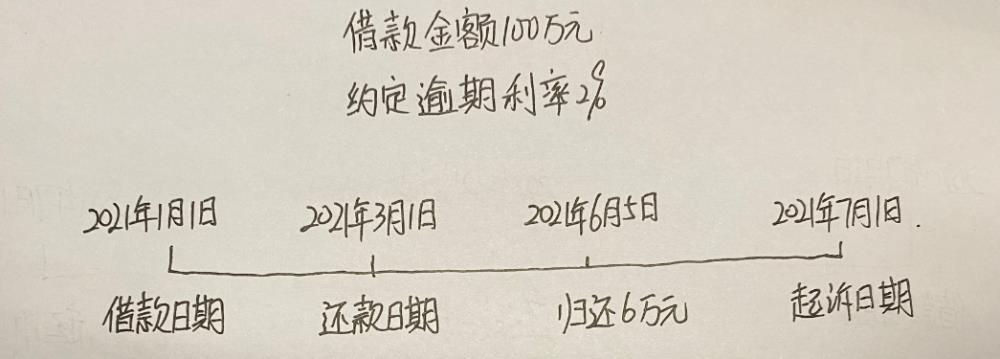 借款金额100万元
约定逾期利率2%
2021年1月1日
2021年3月1日
2021年6月5日
2021年7月1日.
借款日期
还款日期
归还6万元
起诉日期